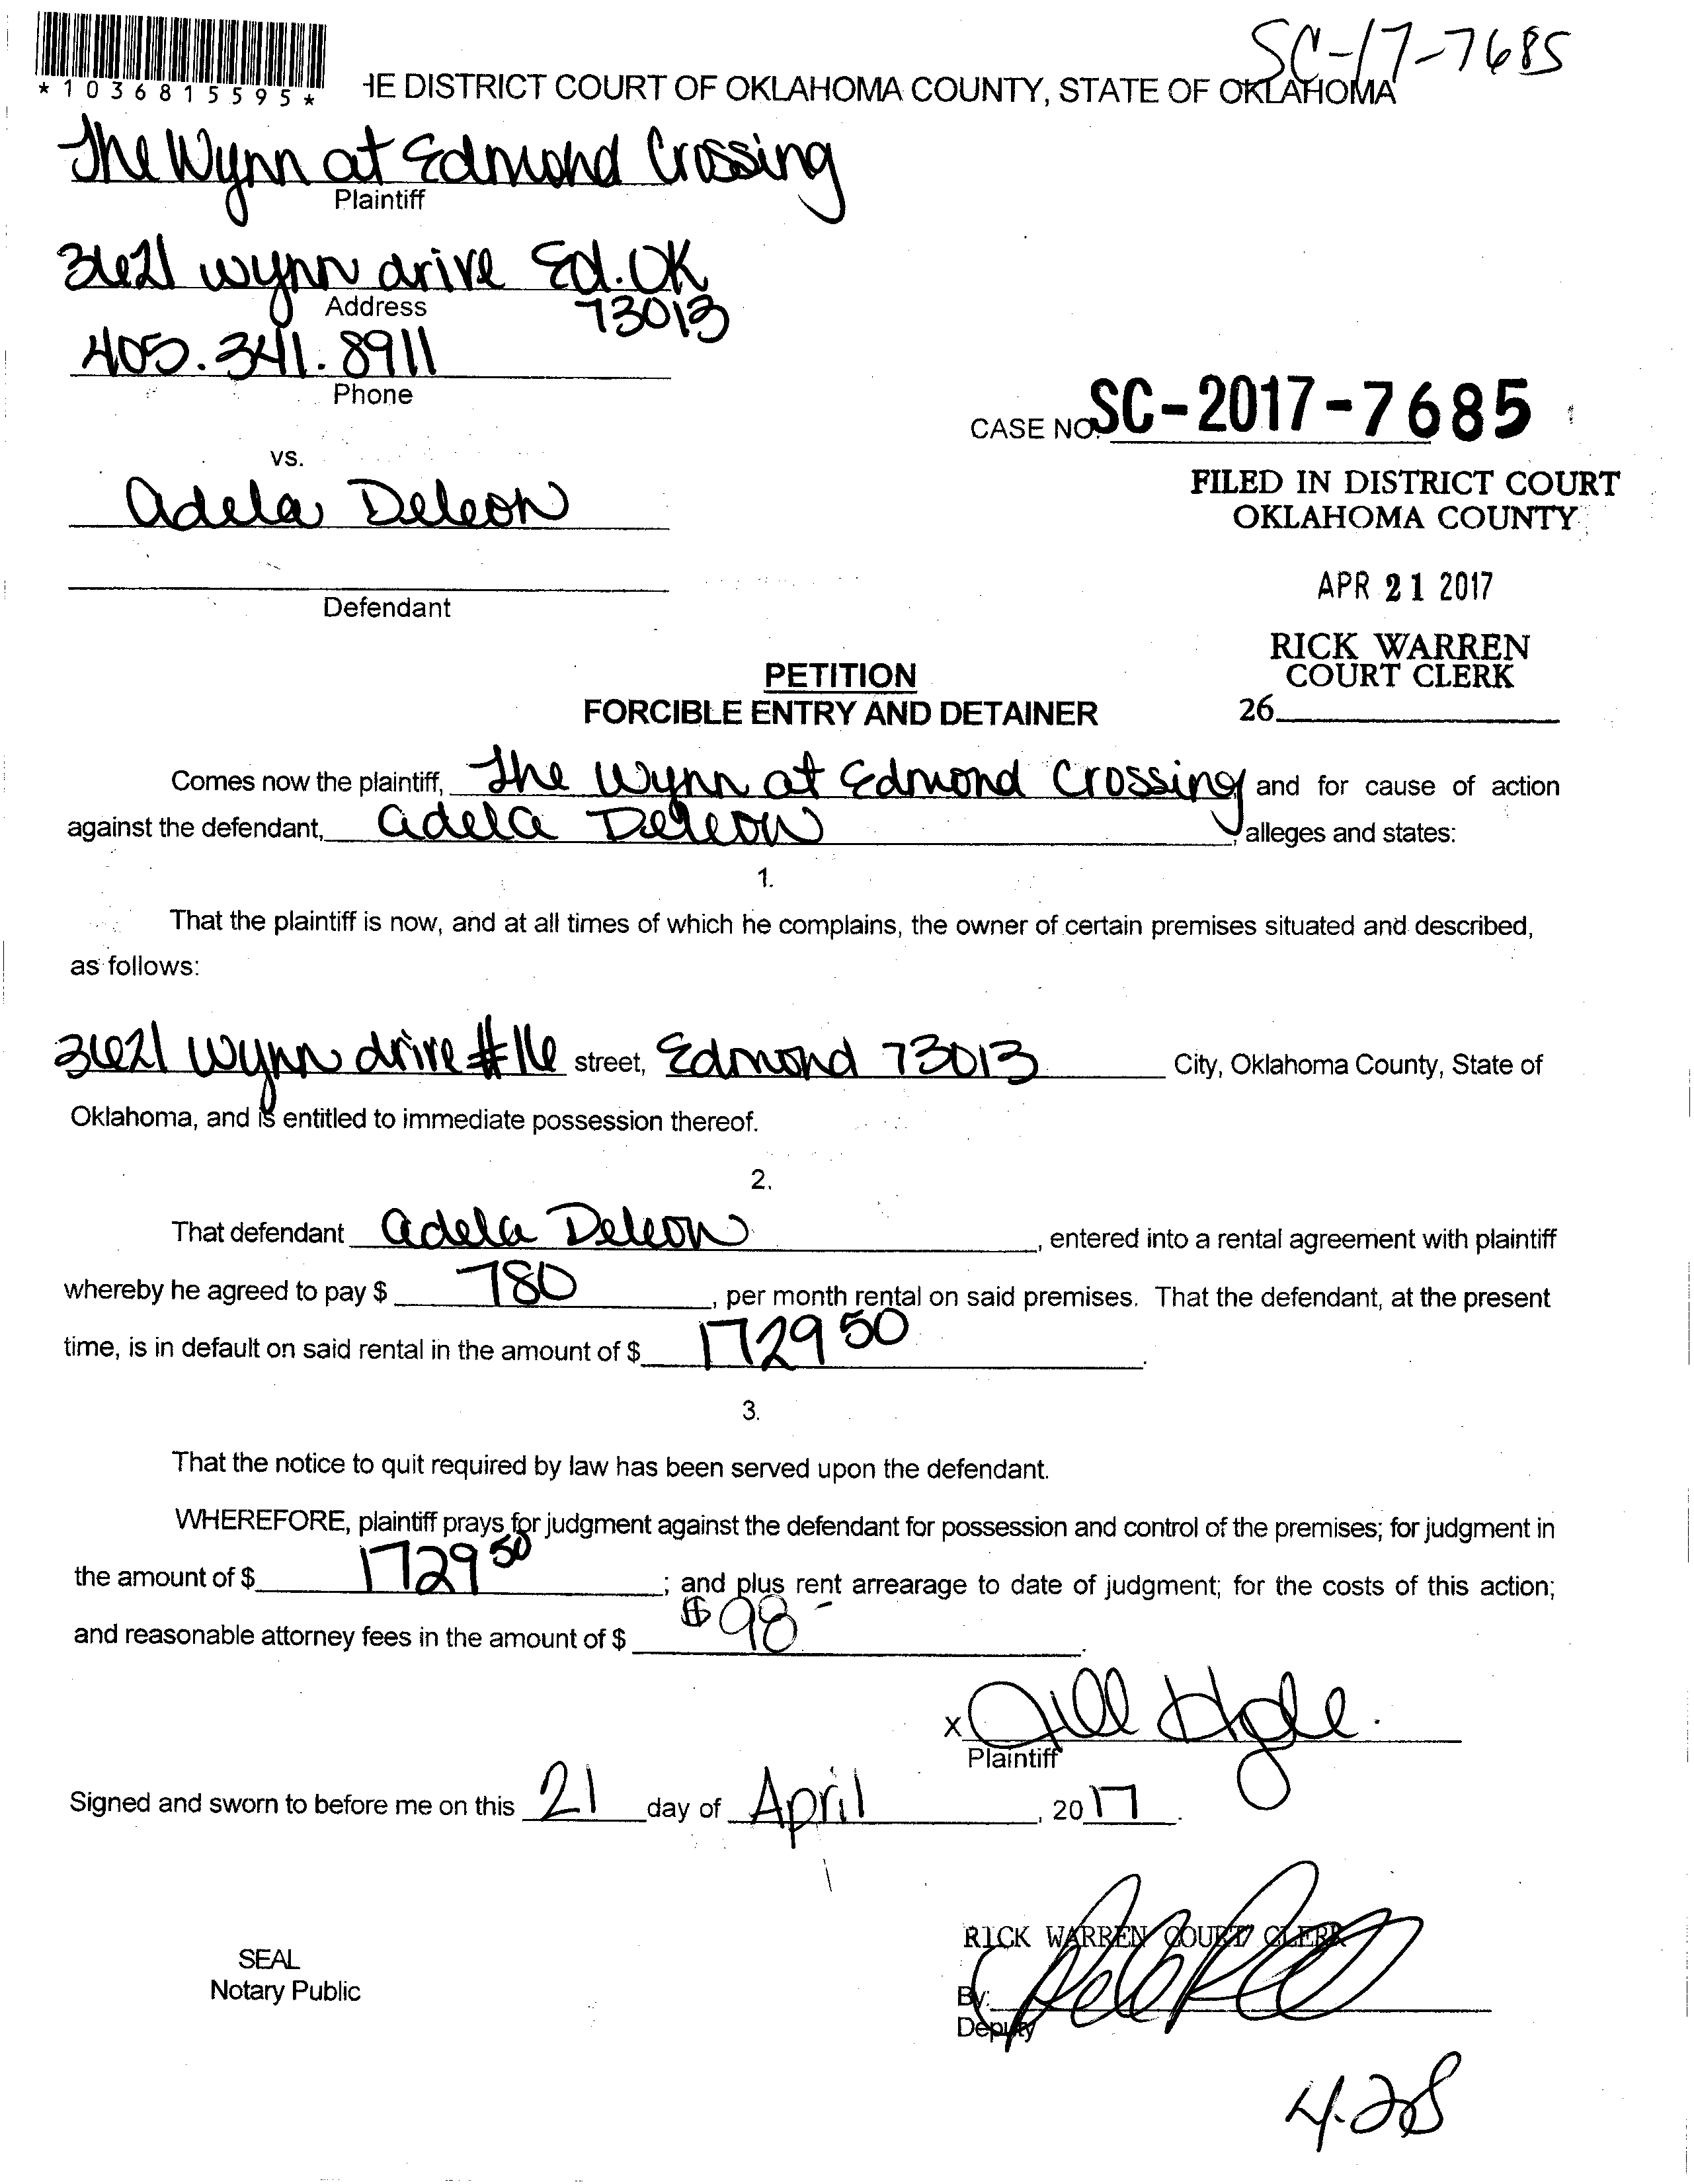 SC-17-7685
*1036815595*
HE DISTRICT COURT OF OKLAHOMA COUNTY, STATE OF OKLAHOMA
The Wynn at Edmond Crossing
Plaintiff
3621 wynn drive Ed. OK
Address
73013
405.341.8911
Phone
CASE NO. SC-2017-7685
vs.
FILED IN DISTRICT COURT
OKLAHOMA COUNTY
Adela Deleon
APR 21 2017
Defendant
RICK WARREN
COURT CLERK
26
PETITION
FORCIBLE ENTRY AND DETAINER
Comes now the plaintiff, The Wynn at Edmond Crossing and for cause of action
against the defendant, Adela Deleon, alleges and states:
1.
That the plaintiff is now, and at all times of which he complains, the owner of certain premises situated and described,
as follows:
3621 Wynn drive #16 street, Edmond 73013 City, Oklahoma County, State of
Oklahoma, and is entitled to immediate possession thereof.
2.
That defendant Adela Deleon, entered into a rental agreement with plaintiff
whereby he agreed to pay $ 780, per month rental on said premises. That the defendant, at the present
time, is in default on said rental in the amount of $ 1729 50.
3.
That the notice to quit required by law has been served upon the defendant.
WHEREFORE, plaintiff prays for judgment against the defendant for possession and control of the premises; for judgment in
the amount of $ 1729 50; and plus rent arrearage to date of judgment; for the costs of this action;
and reasonable attorney fees in the amount of $ $98-.
x Jill
Plaintiff
Signed and sworn to before me on this 21 day of April, 2017.
RICK WARREN COURT CLERK
SEAL
Notary Public
By:
Deputy
4.28